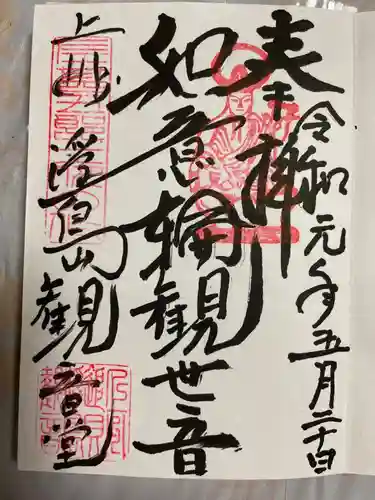 令和元年五月二十日
奉拝
如意輪観世音
上州 浮島観音堂